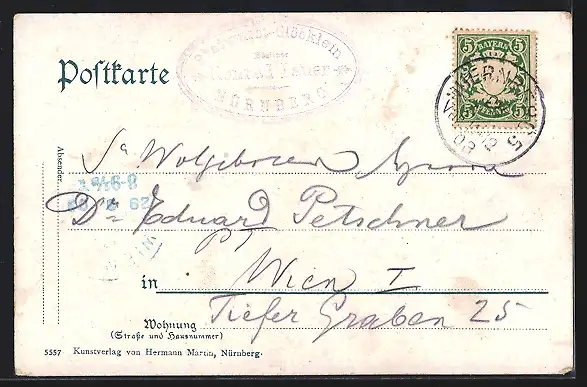 Bratwurst-Glöcklein
NÜRNBERG
BAYERN
5 5
5 5
NUERNBERG
Postkarte
Absender.
Sr Wolgeboren Herrn
Dr. Eduard Petschner
in Wien I
Tiefer Graben 25
Wohnung
(Straße und Hausnummer)
5557 Kunstverlag von Hermann Martin, Nürnberg.